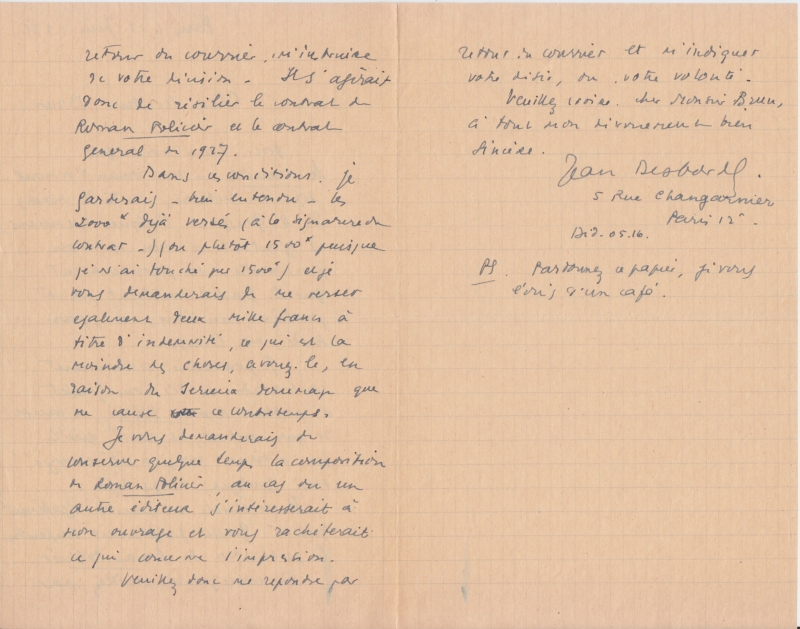 retour du courrier, m'instruire
de votre décision - Il s'agirait
donc de résilier le contrat de
Roman Policier et le contrat
general de 1927.
Dans ces conditions, je
garderais - bien entendu - les
2000 f déjà versés (à la signature du
contrat -) (ou plutôt 1500 f puisque
je n'ai touché que 1500 f) et je
vous demanderais de me verser
egalement deux mille francs à
titre d'indemnité, ce qui est la
moindre des choses, avouez-le, en
raison du serieux dommage que
me cause ce contretemps.
Je vous demanderais de
conserver quelque temps la composition
de Roman Policier, au cas où un
autre éditeur s'intéresserait à
mon ouvrage et vous rachèterait
ce qui concerne l'impression.
Veuillez donc me repondre par
retour du courrier et m'indiquer
votre désir, ou votre volonté.
Veuillez croire, cher Monsieur Brun,
à tout mon dévouement bien
sincère.
Jean Desbordes.
5 Rue Changarnier
Paris 12e.
Did. 05.16.
PS. Pardonnez ce papier, je vous
écris d'un café.